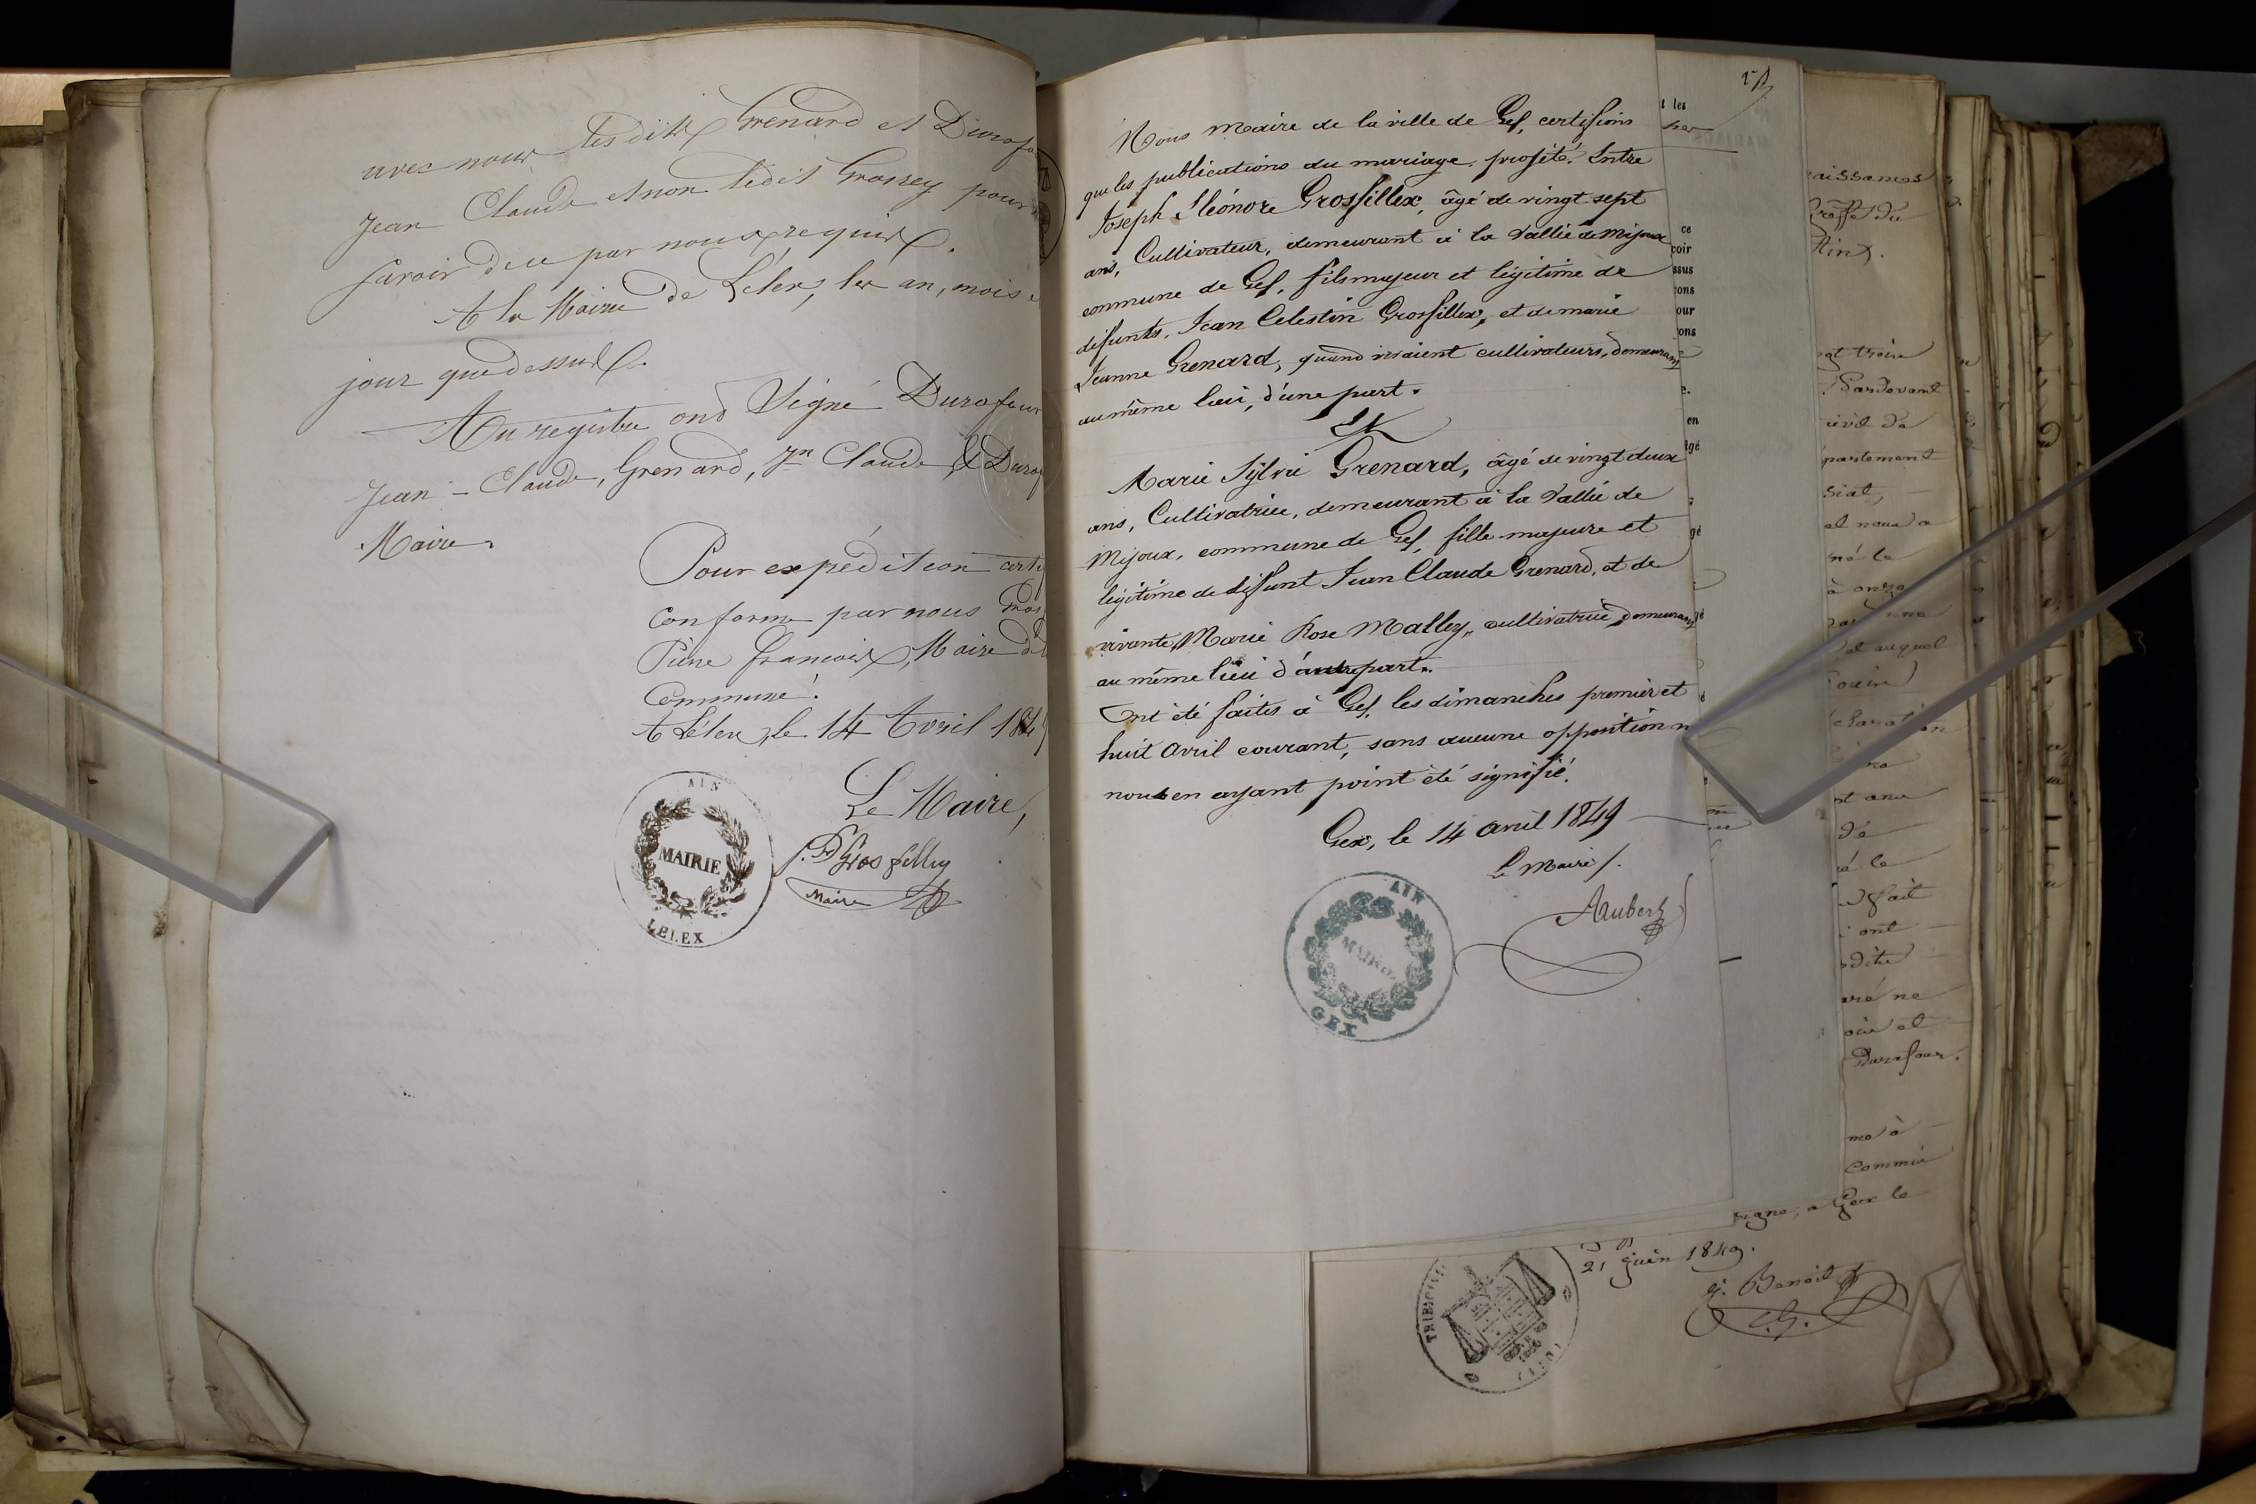 avec nous lesdits Grenard et Durafo
Jean Claude et non ledit Grosrey pour
savoir de ce par nous requis.
A la Mairie de Lélex, les an, mois
jour que dessus.
Au registre ont Signé Durafour
Jean-Claude, Grenard, Jn Claude, & Duraf
Maire.
Pour expédition certi
conforme par nous Gros
Pierre François, Maire de
Commune.
A Lélex, le 14 Avril 184
Le Maire,
P. F. Grosfilley
Maire
AIN
MAIRIE
LELEX
Nous maire de la ville de Gex, certifions
que les publications du mariage projété: Entre
Joseph Eléonore Grosfillex, âgé de vingt sept
ans, Cultivateur, demeurant à la Vallée de Mijoux
commune de Gex, fils majeur et légitime de
defunts, Jean Celestin Grosfillex, et de marie
Jeanne Grenard, quand vivaient cultivateurs, demeurant
au même lieu, d'une part.
Et
Marie Sylvie Grenard, âgé de vingt deux
ans, Cultivatrice, demeurant à la Vallée de
Mijoux, commune de Gex, fille majeure et
légitime de défunt Jean Claude Grenard, et de
vivante, Marie Rose Malley, cultivatrice, demeurant
au même lieu d'autre part.
Ont été faites à Gex, les dimanches premier et
huit avril courant, sans aucune opposition n
nous en ayant point été signifié.
Gex, le 14 avril 1849
Le Maire
Aubert
AIN
MAIRIE
GEX
t les
ce
voir
ssus
ons
our
ons
e.
en
gé
gé
aissances
Greffe du
Ain.
gt trois
Pardevant
civil de
partement
al nous a
né le
auquel
dé
é le
fait
ont
dite
aré ne
et
Durafour.
me à
Commis
signé, a Gex le
21 Juin 1849.
G. Benoit
TRIBUNAL